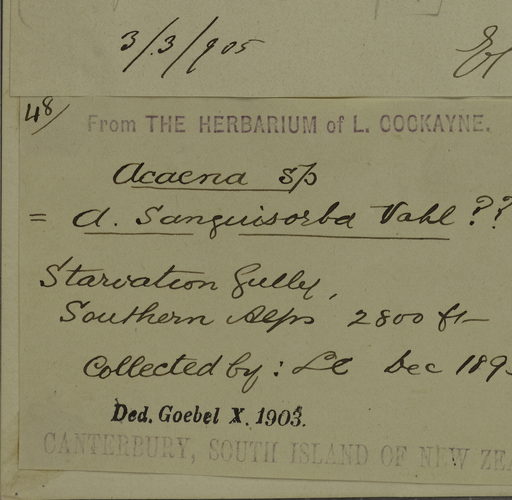 3/.3/905
48/
From THE HERBARIUM of L. COCKAYNE.
Acaena sp
= A. Sanguisorba Vahl ??
Starvation Gully,
Southern Alps 2800 ft
Collected by: LC Dec 189
Ded. Goebel X. 1903.
CANTERBURY, SOUTH ISLAND OF NEW ZEA